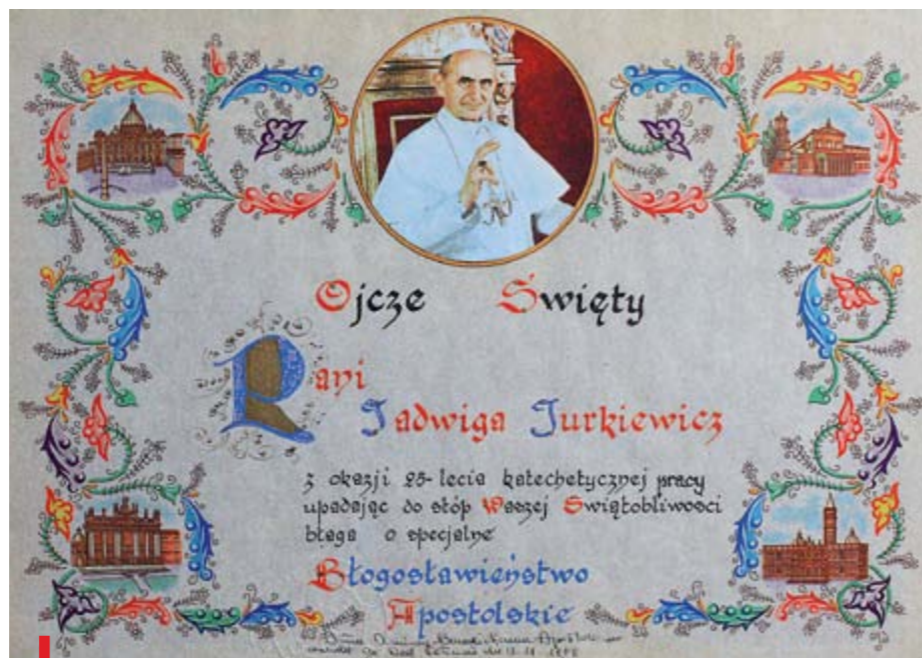 Ojcze Święty
Pani
Jadwiga Jurkiewicz
z okazji 25-lecia katechetycznej pracy
upadając do stóp Waszej Świątobliwości
błaga o specjalne
Błogosławieństwo
Apostolskie